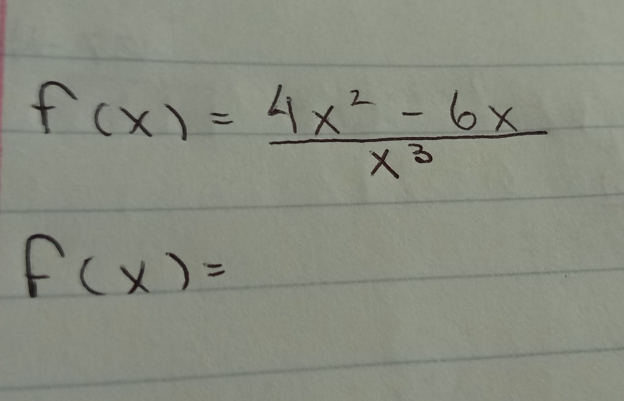 f(x) = \frac{4x^2 - 6x}{x^3}
f(x) =